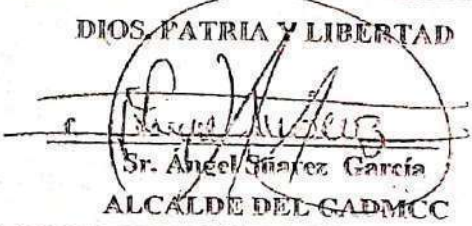 DIOS, PATRIA Y LIBERTAD
Sr. Ángel Súarez García
ALCALDE DEL GADMCC